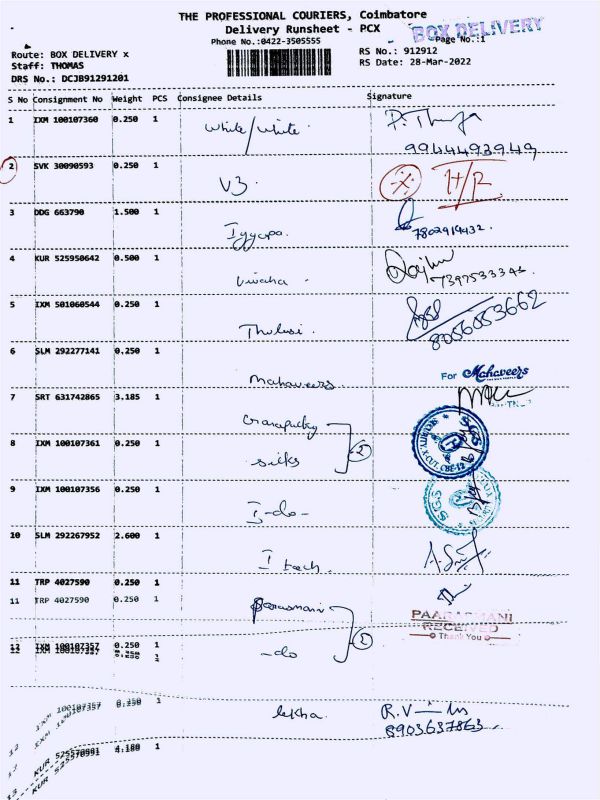 THE PROFESSIONAL COURIERS, Coimbatore
Delivery Runsheet - PCX
BOX DELIVERY
Phone No.:0422-3505555
Page No.:1
Route: BOX DELIVERY x
RS No.: 912912
Staff: THOMAS
RS Date: 28-Mar-2022
DRS No.: DCJB91291201
S No Consignment No Weight PCS Consignee Details Signature
1 IXM 100107360 0.250 1 White/White
9944493949
2 SVK 30090593 0.250 1 V3. H/R
3 DDG 663790 1.500 1 Iyyapa.
7802919432.
4 KUR 525950642 0.500 1 Vivaha.
7397533343.
5 IXM 501060544 0.250 1 Thulasi.
8056053662
6 SLM 292277141 0.250 1 Mahaveers.
For Mahaveers
7 SRT 631742865 3.185 1
8 IXM 100107361 0.250 1 silks 2
SGS
9 IXM 100107356 0.250 1 -do-
SGS
10 SLM 292267952 2.600 1 I tech.
11 TRP 4027590 0.250 1
11 TRP 4027590 0.250 1 Paarasmani 2
PAARASMANI
RECEIVED
Thank You
12 IXM 100107357 0.250 1 -do
12 IXM 100107357 0.250 1 lekha.
8903637863
13 KUR 525570981 4.180 1
13 KUR 525570981